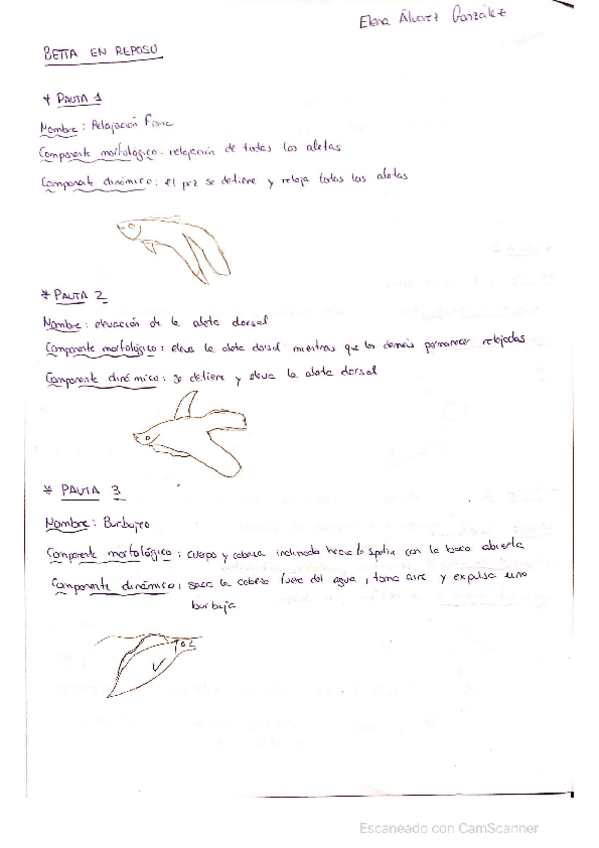 Elena Álvarez González
BETTA EN REPOSO
* PAUTA 1
Nombre: Relajación física
Componente morfológico: relajación de todas las aletas
Componente dinámico: el pez se detiene y relaja todas las aletas
* PAUTA 2
Nombre: elevación de la aleta dorsal
Componente morfológico: eleva la aleta dorsal mientras que las demás permanecen relajadas
Componente dinámico: se detiene y eleva la aleta dorsal
* PAUTA 3
Nombre: Burbujeo
Componente morfológico: cuerpo y cabeza inclinada hacia la con la boca abierta
Componente dinámico: saca la cabeza fuera del agua, toma aire y expulsa una
burbuja
Escaneado con CamScanner